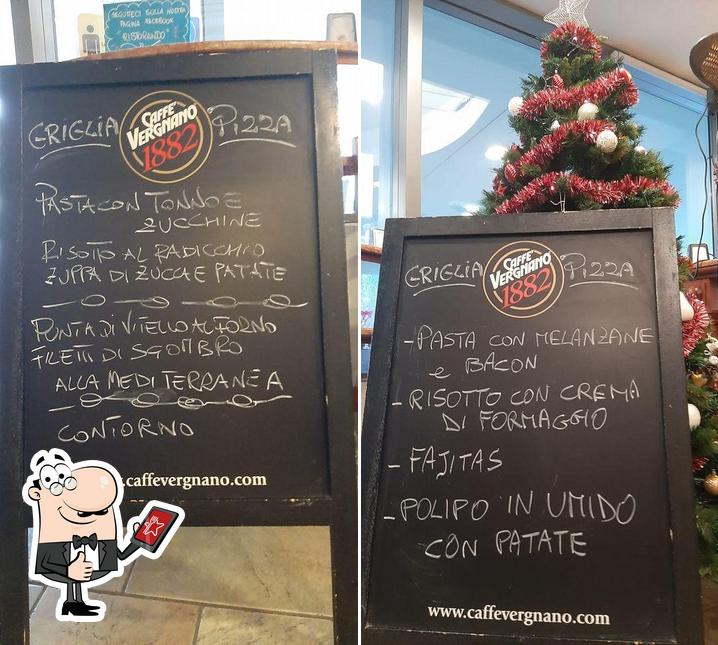 SEGUITECI SULLA NOSTRA
PAGINA FACEBOOK
"RISTORANDO"
GRIGLIA CAFFÈ VERGNANO 1882 PIZZA
PASTA CON TONNO E
ZUCCHINE
RISOTTO AL RADICCHIO
ZUPPA DI ZUCCA E PATATE
PUNTA DI VITELLO AL FORNO
FILETTI DI SGOMBRO
ALLA MEDITERRANEA
CONTORNO
.caffevergnano.com
GRIGLIA CAFFÈ VERGNANO 1882 PIZZA
- PASTA CON MELANZANE
e BACON
- RISOTTO CON CREMA
DI FORMAGGIO
- FAJITAS
- POLIPO IN UMIDO
CON PATATE
www.caffevergnano.com